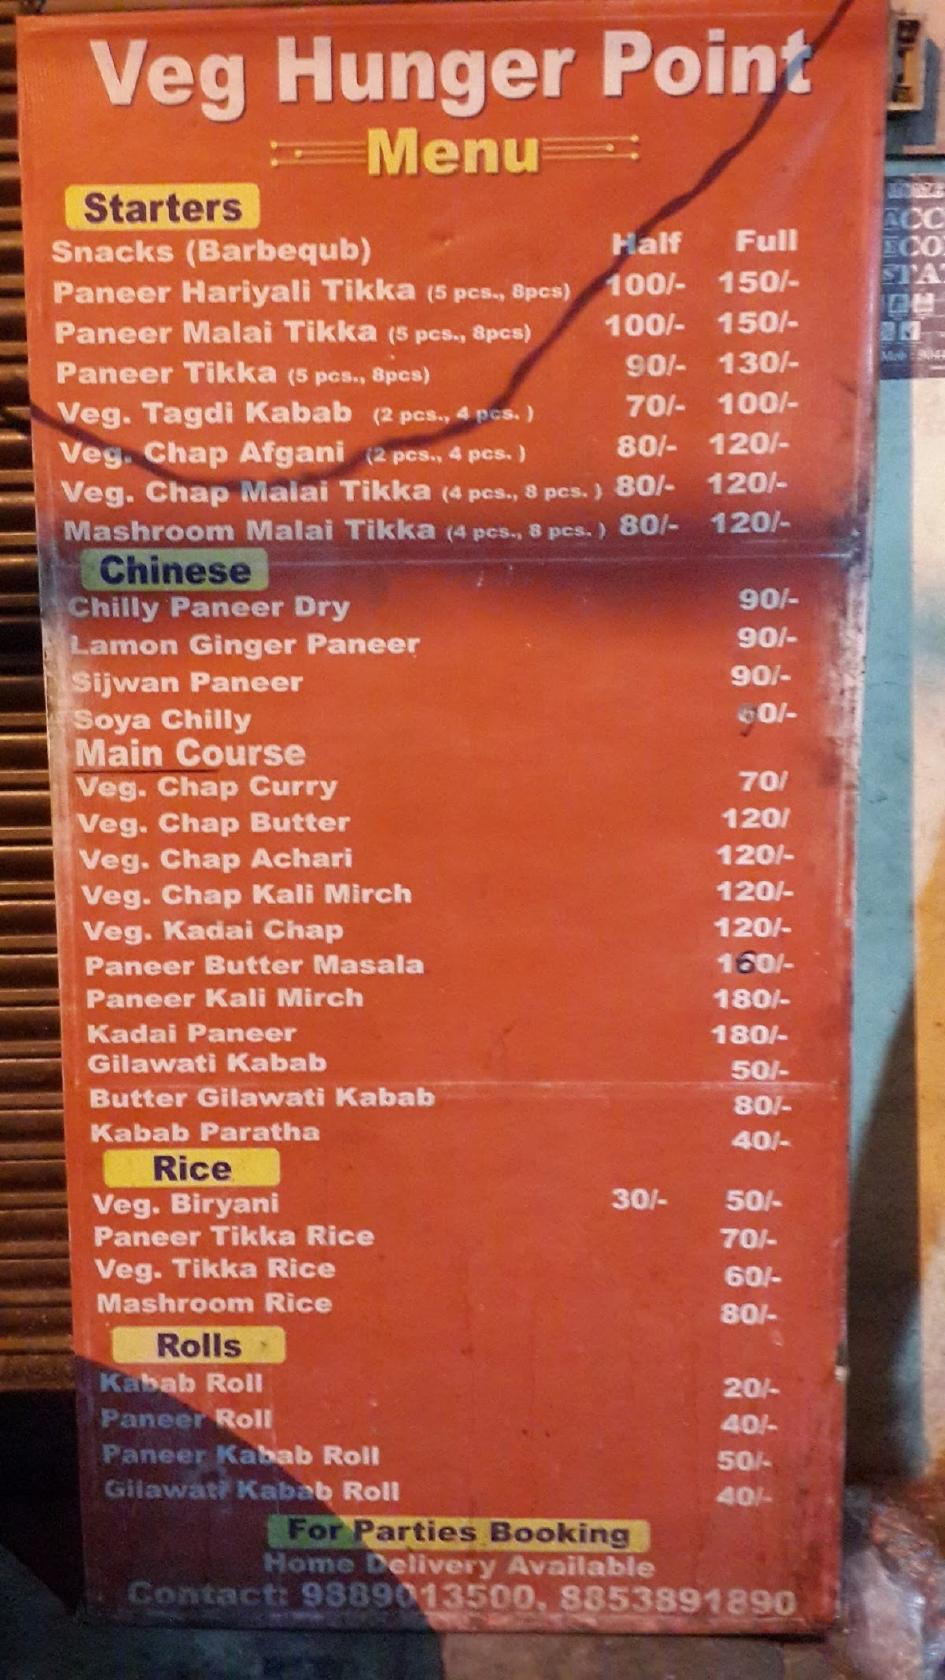 Veg Hunger Point
Menu
Starters
Snacks (Barbequb) Half Full
Paneer Hariyali Tikka (5 pcs., 8pcs) 100/- 150/-
Paneer Malai Tikka (5 pcs., 8pcs) 100/- 150/-
Paneer Tikka (5 pcs., 8pcs) 90/- 130/-
Veg. Tagdi Kabab (2 pcs., 4 pcs. ) 70/- 100/-
Veg. Chap Afgani (2 pcs., 4 pcs. ) 80/- 120/-
Veg. Chap Malai Tikka (4 pcs., 8 pcs. ) 80/- 120/-
Mashroom Malai Tikka (4 pcs., 8 pcs. ) 80/- 120/-
Chinese
Chilly Paneer Dry 90/-
Lamon Ginger Paneer 90/-
Sijwan Paneer 90/-
Soya Chilly
Main Course
Veg. Chap Curry 70/
Veg. Chap Butter 120/
Veg. Chap Achari 120/-
Veg. Chap Kali Mirch 120/-
Veg. Kadai Chap 120/-
Paneer Butter Masala 160/-
Paneer Kali Mirch 180/-
Kadai Paneer 180/-
Gilawati Kabab 50/-
Butter Gilawati Kabab 80/-
Kabab Paratha 40/-
Rice
Veg. Biryani 30/- 50/-
Paneer Tikka Rice 70/-
Veg. Tikka Rice 60/-
Mashroom Rice 80/-
Rolls
Kabab Roll 20/-
Paneer Roll 40/-
Paneer Kabab Roll 50/-
Gilawati Kabab Roll 40/-
For Parties Booking
Home Delivery Available
Contact: 9889013500, 8853891890